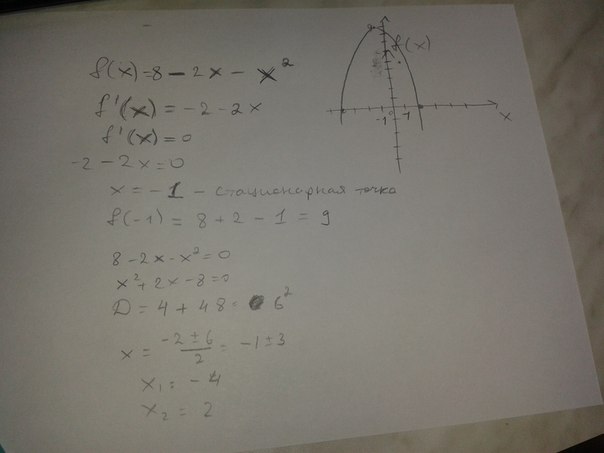 f(x)=8-2x-x²
f'(x)=-2-2x
f'(x)=0
-2-2x=0
x=-1 - стационарная точка
f(-1)=8+2-1=9
8-2x-x²=0
x²+2x-8=0
D=4+48= 6²
x=(-2±6)/2=-1±3
x₁=-4
x₂=2
f(x)
-1 1
x